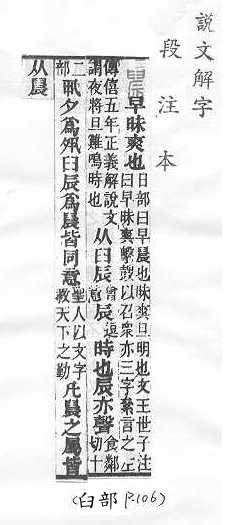 説文解字
段注本
晨 早昧爽也 日部曰早晨也昧爽旦明也文王世子注
曰早昧爽擊鼓以召衆亦三字絫言之左
傳僖五年正義解說文
謂夜將旦雞鳴時也
从臼辰 會意 辰 逗 時也辰亦聲 食鄰切十
二部 丮夕爲𡖊臼辰爲晨皆同意 聖人以文字敎天下之勤 凡晨之屬皆
从晨
(臼部 P.106)